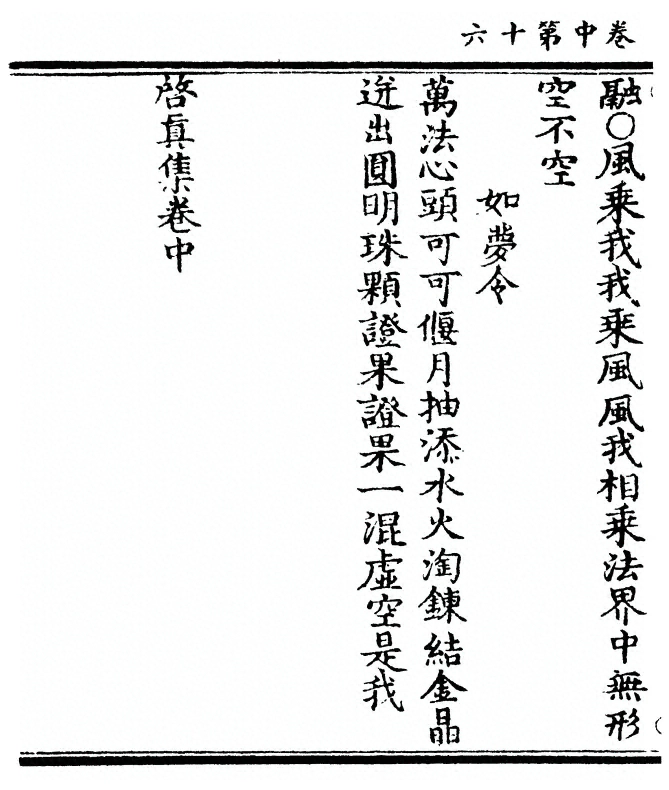 卷中第十六
融○風乘我我乘風風我相乘法界中無形
空不空
如夢令
萬法心頭可可偃月抽添水火淘鍊結金晶
迸出圓明珠顆證果證果一混虛空是我
啓真集卷中